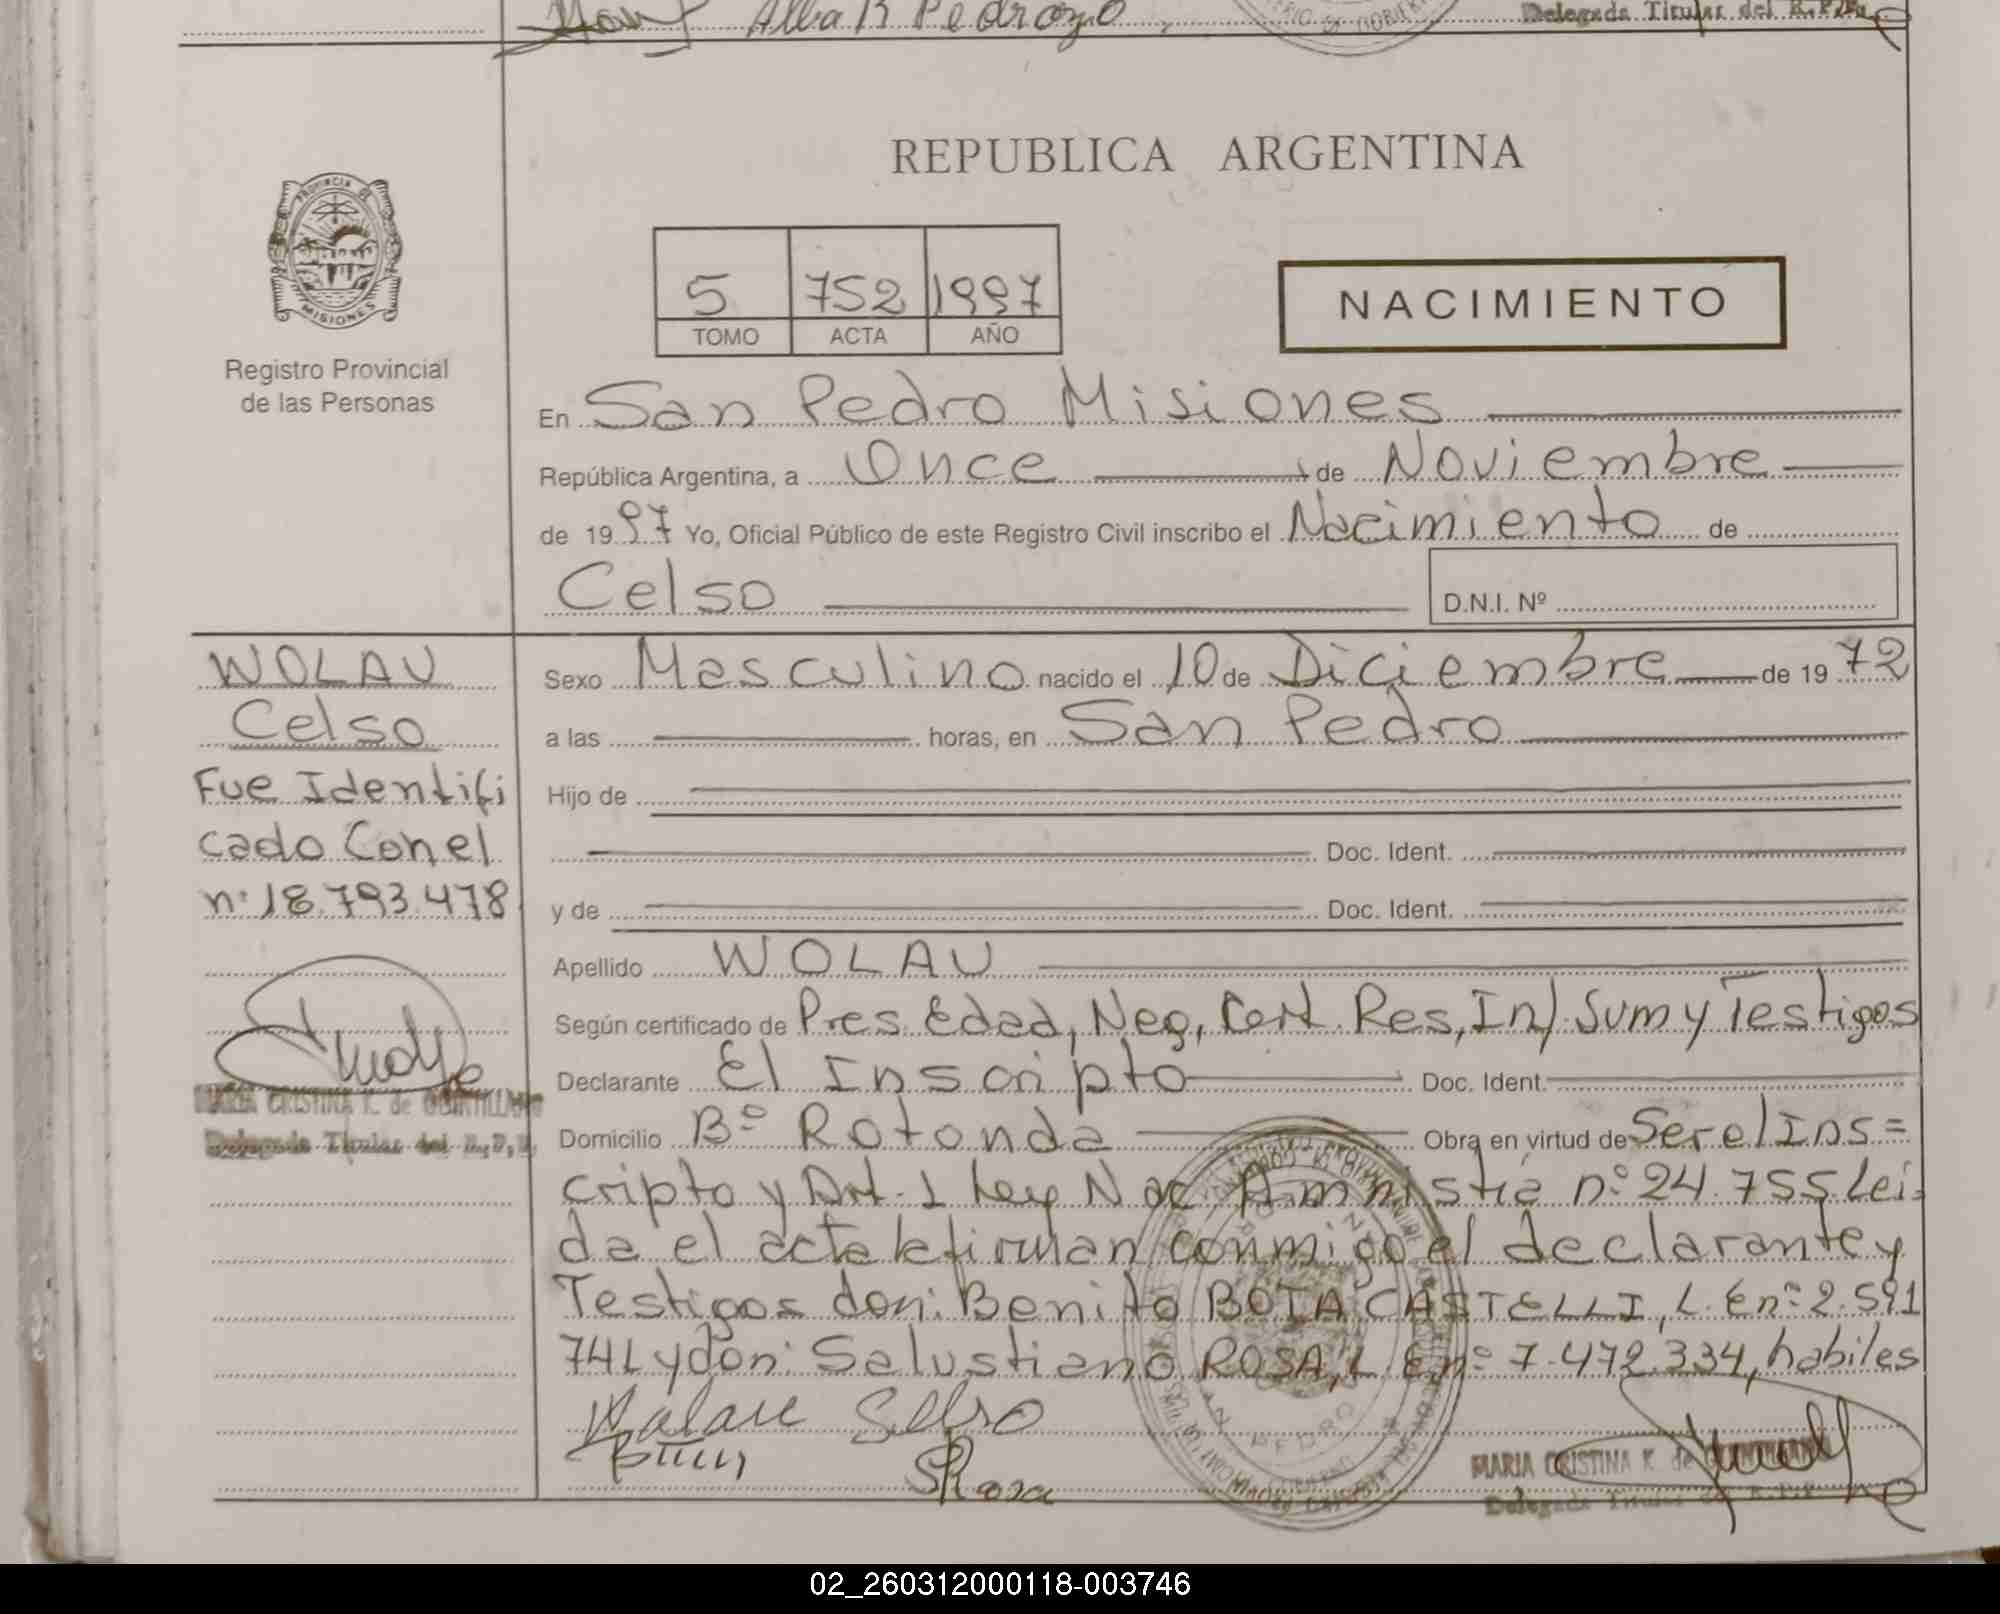 Alba R Pedrozo
Delegada Titular del R.P.P.
PROVINCIA DE
MISIONES
Registro Provincial
de las Personas
REPUBLICA ARGENTINA
5 752 1997
TOMO ACTA AÑO
NACIMIENTO
En San Pedro Misiones
República Argentina, a Once de Noviembre
de 1997 Yo, Oficial Público de este Registro Civil inscribo el Nacimiento de
Celso D.N.I. Nº
WOLAU
Celso
Fue Identifi
cado Con el
nº 18.793.478
MARIA CRISTINA K. de QUINTILLAN
Delegada Titular del R.P.P.
Sexo Masculino nacido el 10 de Diciembre de 1972
a las horas, en San Pedro
Hijo de
Doc. Ident.
y de Doc. Ident.
Apellido WOLAU
Según certificado de Pres. Edad, Neg, Cert. Res, Inf Sum y Testigos
Declarante El Inscripto Doc. Ident.
Domicilio Bº Rotonda Obra en virtud de Ser el Ins=
cripto y Art. 1 Ley Nac. Amnistia nº 24.755. Lei=
da el acta la firman conmigo el declarante y
Testigos don: Benito BOTA CASTELLI, L. E nº 2.591
741 y don: Salustiano ROSA, L. E nº 7.472.334, habiles
SRosa
SAN PEDRO
MARIA CRISTINA K. de
Delegada Titular del R.P.P.
02_260312000118-003746